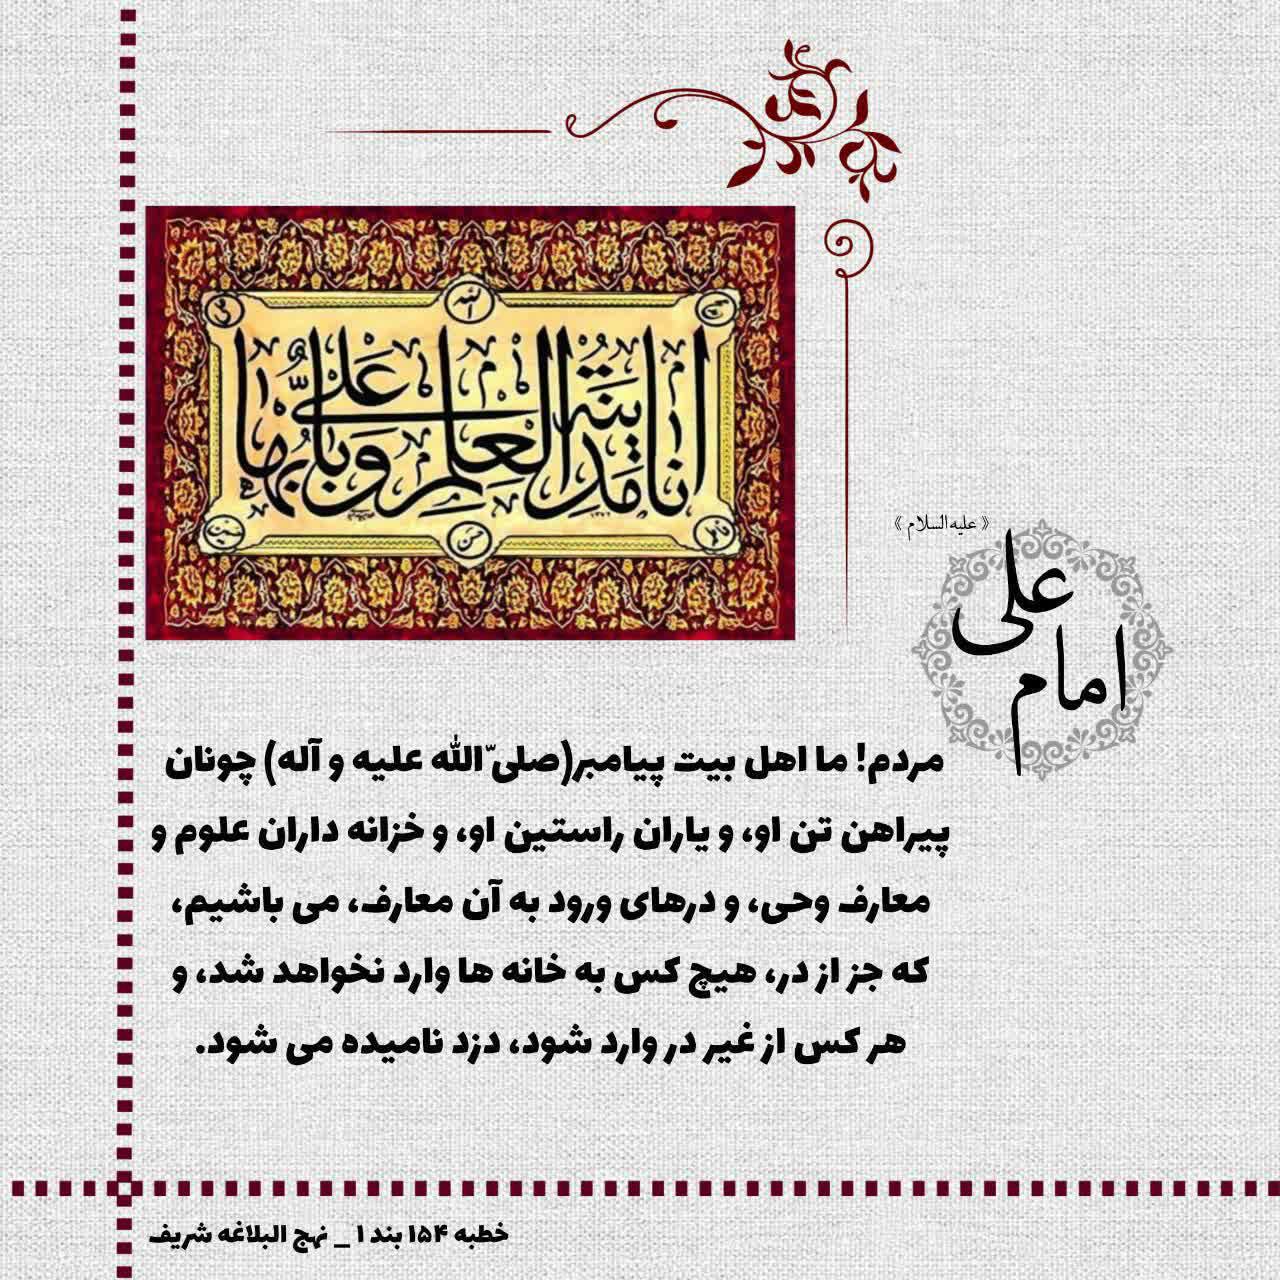 الله
محمد
علی
انا مدینة العلم وعلیٌّ بابها
فاطمه
حسن
حسین
《 علیه السلام 》
امام علی
مردم! ما اهل بیت پیامبر(صلی ّالله علیه و آله) چونان
پیراهن تن او، و یاران راستین او، و خزانه داران علوم و
معارف وحی، و درهای ورود به آن معارف، می باشیم،
که جز از در، هیچ کس به خانه ها وارد نخواهد شد، و
هر کس از غیر در وارد شود، دزد نامیده می شود.
خطبه ۱۵۴ بند ۱ _ نهج البلاغه شریف